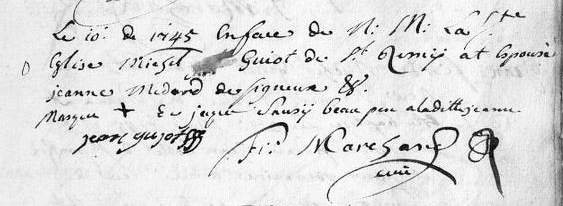 Le 10: de 1745 Enface de N: M: La Ste
Eglise Michel Guiot de St Remij at Epousé
jeanne Medard de signeux &.
Marque + De jaque Saussij beau pere aladitte jeanne
jean guiot
Fr: Marchand
curé